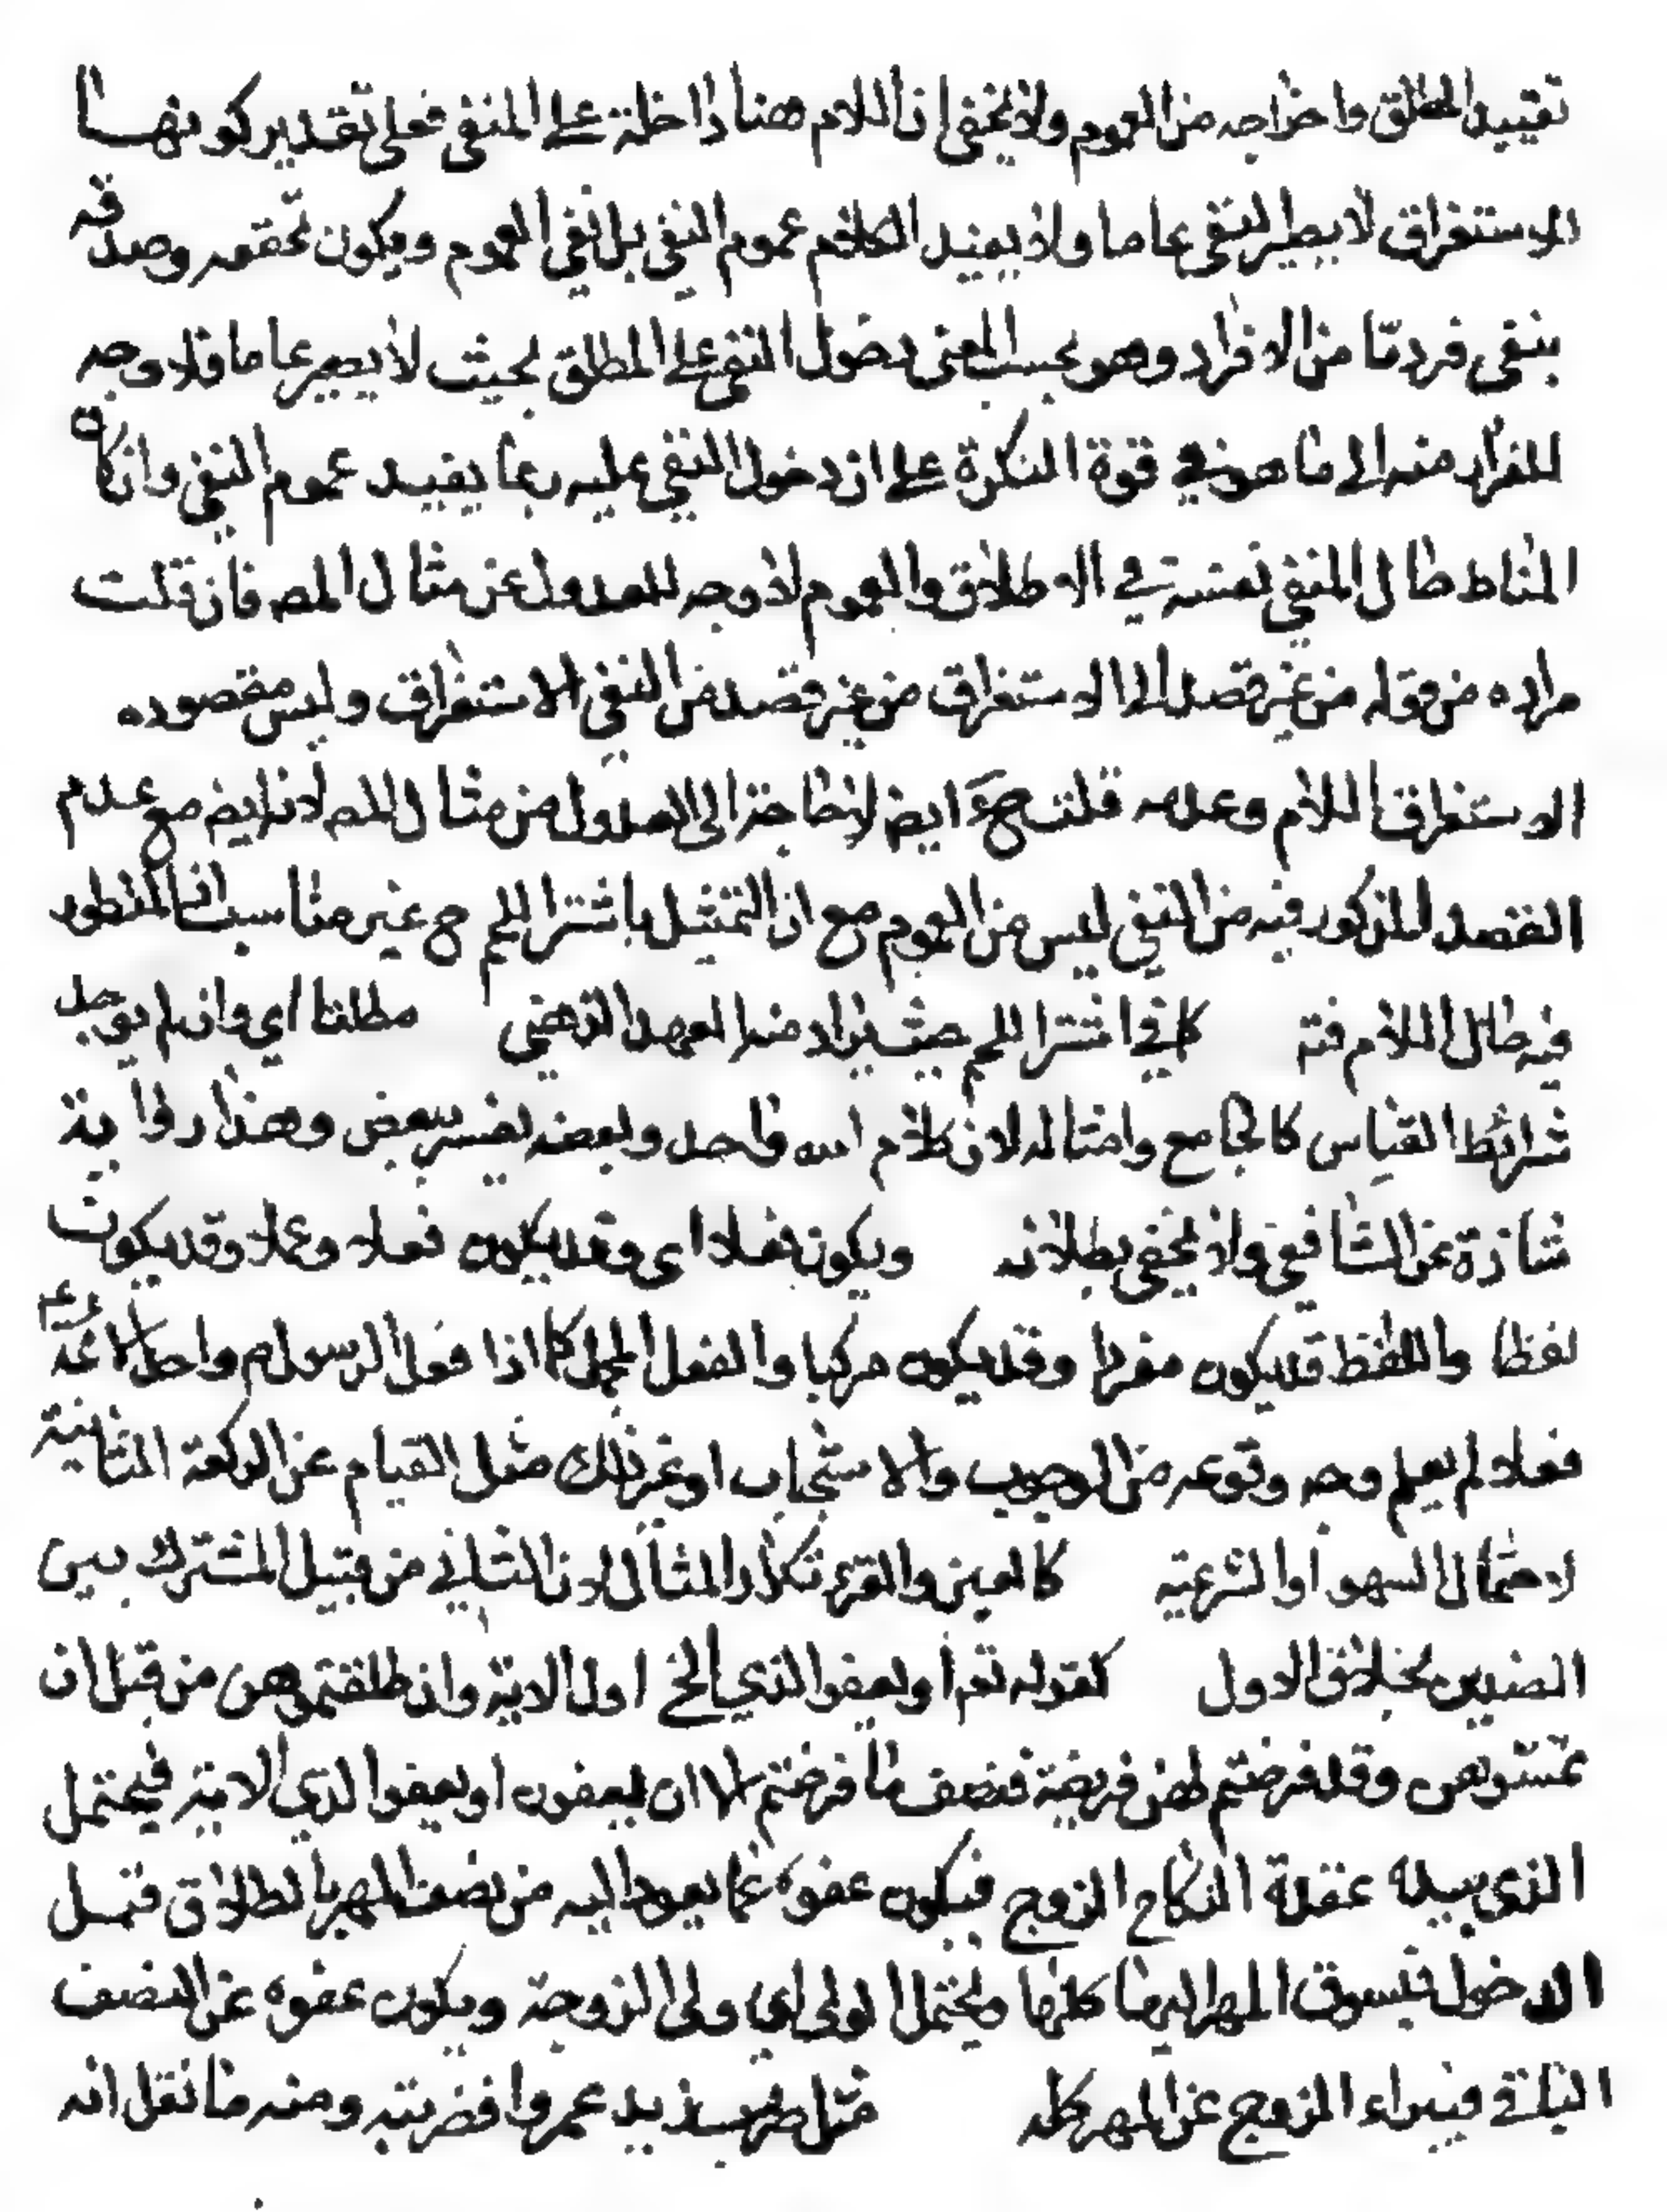 تقييد المطلق واخراجه من العموم ولا يخفى ان اللام هنا داخلة على المنفى فعلى تقدير كونها
للاستغراق لا يصير النفى عاما ولا يفيد الكلام عموم النفي بل نفي العموم ويكون تحققه وصدقه
بنفى فرد مّا من الافراد وهو بحسب المعنى دخول النفى على المطلق بحيث لا يصير عاما فلا وجه
للفرار منه الى ما هو في قوة النكرة على ان دخول النفي عليه ربما يفيد عموم النفي وان كان
المناط حال المنفي نفسه في الاطلاق والعموم لا وجه للعدول عن مثال المصـ فان قلت
مراده من قوله من غير قصد الى الاستغراق من غير قصد من النفي الاستغراق وليس مقصوده
الاستغراق اللام وعدمه قلت ح ايضـ لا حاجة الى العدول من مثال المصـ لانه ايضـ مع عدم
القصد المذكور فيه من النفي ليس من العموم مع ان التمثيل باشترا اللحم ح غير مناسب اذ المنظور
فيه حال اللام فتم كما في اشترا اللحم حيث يراد منه العهد الذهني مطلقا اي وان لم يوجد
شرائط القياس كالجامع وامثاله لان كلام الله واحد وبعضه يفسر ببعض وهذا رواية
شاذة عن الشافعي ولا يخفى بطلانه ويكون فعلا اي وقد يكون فعلا وعملا وقد يكون
لفظا واللفظ قد يكون مفردا وقد يكون مركبا والفعل المجمل كما اذا فعل الرسول م واحد الائمة ع
فعلا لم يعلم وجه وقوعه من الوجوب والاستحباب او غير ذلك مثل القيام عن الركعة الثانية
لاحتمال السهو او الشرعية كالعين والقرء تكرار المثال لان الثاني من قبيل المشترك بين
الضدين بخلاف الاول كقوله تعـ او يعفوا الذي الخ اول الاية وان طلقتموهن من قبل ان
تمسّوهن وقد فرضتم لهن فريضة فنصف ما فرضتم الا ان يعفون او يعفوا الذي الاية فيحتمل
الذي بيده عقدة النكاح الزوج فيكون عفوه عما يعود اليه من نصف المهر بالطلاق قبل
الدخول فيسوق المهر اليها كلها ويحتمل الولي اي ولي الزوجة ويكون عفوه عن النصف
الباقي فيبراء الزوج عن المهر كله مثل ضرب زيد عمروا فضربته ومنه ما نقل انه